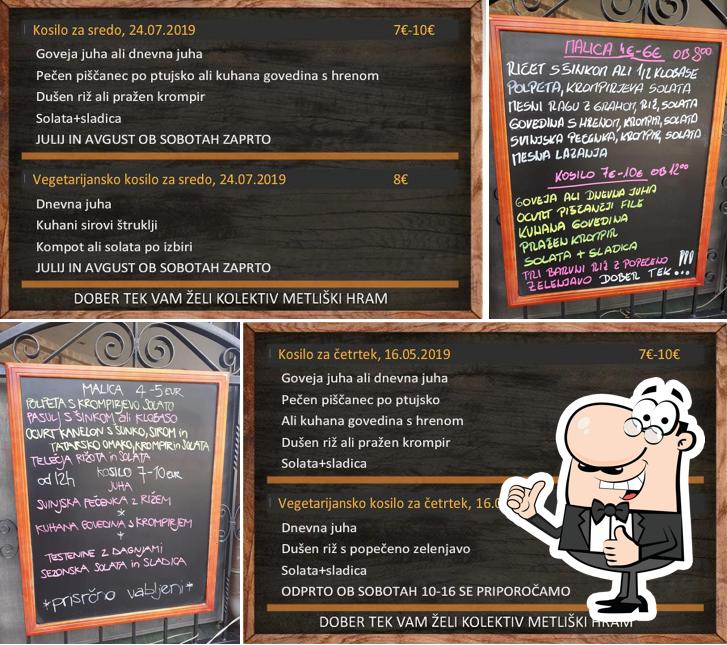 Kosilo za sredo, 24.07.2019 7€-10€
Goveja juha ali dnevna juha
Pečen piščanec po ptujsko ali kuhana govedina s hrenom
Dušen riž ali pražen krompir
Solata+sladica
JULIJ IN AVGUST OB SOBOTAH ZAPRTO
Vegetarijansko kosilo za sredo, 24.07.2019 8€
Dnevna juha
Kuhani sirovi štruklji
Kompot ali solata po izbiri
JULIJ IN AVGUST OB SOBOTAH ZAPRTO
DOBER TEK VAM ŽELI KOLEKTIV METLIŠKI HRAM
MALICA 4€-6€ OB 8⁰⁰
RIČET S ŠINKOM ALI 1/2 KLOBASE
POLPETA, KROMPIRJEVA SOLATA
MESNI RAGU Z GRAHOM, RIŽ, SOLATA
GOVEDINA S HRENOM, KROMPIR, SOLATA
SVINJSKA PEČENKA, KROMPIR, SOLATA
MESNA LAZANJA
KOSILO 7€-10€ OB 12⁰⁰
GOVEJA ALI DNEVNA JUHA
OCVRT PIŠČANČJI FILE
KUHANA GOVEDINA
PRAŽEN KROMPIR
SOLATA + SLADICA
TRI BARVNI RIŽ Z POPEČENO
ZELENJAVO DOBER TEK...
MALICA 4-5 EUR
POLPETA S KROMPIRJEVO SOLATO
PASULJ S ŠINKOM ali KLOBASO
OCVRT KANELON S ŠUNKO, SIROM in
TATARSKO OMAKO, KROMPIR in SOLATA
TELEČJA RIŽOTA in SOLATA
od 12h KOSILO 7-10 EUR
JUHA
SVINJSKA PEČENKA Z RIŽEM
*
KUHANA GOVEDINA S KROMPIRJEM
*
TESTENINE Z DAGNJAMI
SEZONSKA SOLATA in SLADICA
*prisrčno vabljeni*
Kosilo za četrtek, 16.05.2019 7€-10€
Goveja juha ali dnevna juha
Pečen piščanec po ptujsko
Ali kuhana govedina s hrenom
Dušen riž ali pražen krompir
Solata+sladica
Vegetarijansko kosilo za četrtek, 16.0
Dnevna juha
Dušen riž s popečeno zelenjavo
Solata+sladica
ODPRTO OB SOBOTAH 10-16 SE PRIPOROČAMO
DOBER TEK VAM ŽELI KOLEKTIV METLIŠKI HRAM